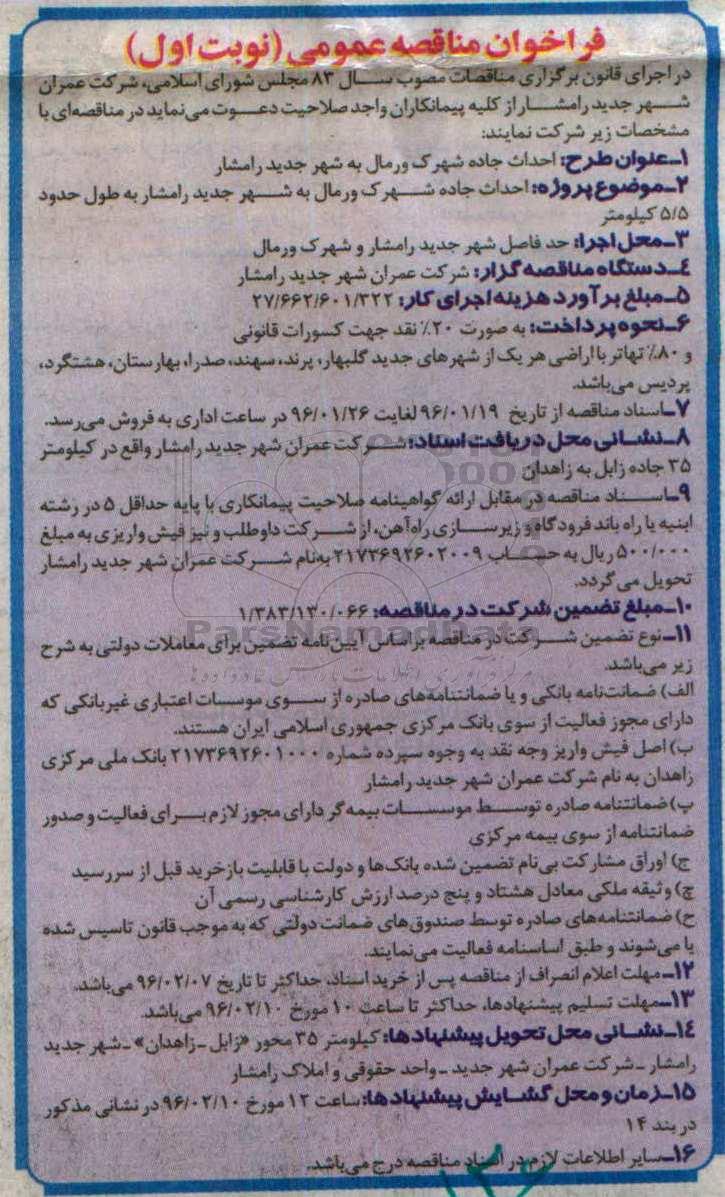 فراخوان مناقصه عمومی (نوبت اول)
در اجرای قانون برگزاری مناقصات مصوب سال ۸۳ مجلس شورای اسلامی، شرکت عمران
شهر جدید رامشار از کلیه پیمانکاران واجد صلاحیت دعوت می‌نماید در مناقصه‌ای با
مشخصات زیر شرکت نمایند:
۱ـ عنوان طرح: احداث جاده شهرک ورمال به شهر جدید رامشار
۲ـ موضوع پروژه: احداث جاده شهرک ورمال به شهر جدید رامشار به طول حدود
۵/۵ کیلومتر
۳ـ محل اجرا: حد فاصل شهر جدید رامشار و شهرک ورمال
۴ـ دستگاه مناقصه گزار: شرکت عمران شهر جدید رامشار
۵ـ مبلغ برآورد هزینه اجرای کار: ۲۷/۶۶۲/۶۰۱/۳۲۲
۶ـ نحوه پرداخت: به صورت ۲۰٪ نقد جهت کسورات قانونی
و ۸۰٪ تهاتر با اراضی هر یک از شهرهای جدید گلبهار، پرند، سهند، صدرا، بهارستان، هشتگرد،
پردیس می‌باشد.
۷ـ اسناد مناقصه از تاریخ ۹۶/۰۱/۱۹ لغایت ۹۶/۰۱/۲۶ در ساعت اداری به فروش می‌رسد.
۸ـ نشانی محل دریافت اسناد: شرکت عمران شهر جدید رامشار واقع در کیلومتر
۳۵ جاده زابل به زاهدان
۹ـ اسناد مناقصه در مقابل ارائه گواهینامه صلاحیت پیمانکاری با پایه حداقل ۵ در رشته
ابنیه یا راه باند فرودگاه و زیرسازی راه‌آهن، از شرکت داوطلب و نیز فیش واریزی به مبلغ
۵۰۰/۰۰۰ ریال به حساب ۲۱۷۳۶۹۲۶۰۲۰۰۹ به‌نام شرکت عمران شهر جدید رامشار
تحویل می گردد.
۱۰ـ مبلغ تضمین شرکت در مناقصه: ۱/۳۸۳/۱۳۰/۰۶۶
۱۱ـ نوع تضمین شرکت در مناقصه براساس آیین‌نامه تضمین برای معاملات دولتی به شرح
زیر می‌باشد.
الف) ضمانت‌نامه بانکی و یا ضمانتنامه‌های صادره از سوی موسسات اعتباری غیربانکی که
دارای مجوز فعالیت از سوی بانک مرکزی جمهوری اسلامی ایران هستند.
ب) اصل فیش واریز وجه نقد به وجوه سپرده شماره ۲۱۷۳۶۹۲۶۰۱۰۰۰ بانک ملی مرکزی
زاهدان به نام شرکت عمران شهر جدید رامشار
پ) ضمانتنامه صادره توسط موسسات بیمه‌گر دارای مجوز لازم برای فعالیت و صدور
ضمانتنامه از سوی بیمه مرکزی
ج) اوراق مشارکت بی‌نام تضمین شده بانک‌ها و دولت با قابلیت بازخرید قبل از سررسید
چ) وثیقه ملکی معادل هشتاد و پنج درصد ارزش کارشناسی رسمی آن
ح) ضمانتنامه‌های صادره توسط صندوق‌های ضمانت دولتی که به موجب قانون تاسیس شده
یا می‌شوند و طبق اساسنامه فعالیت می‌نمایند.
۱۲ـ مهلت اعلام انصراف از مناقصه پس از خرید اسناد، حداکثر تا تاریخ ۹۶/۰۲/۰۷ می‌باشد.
۱۳ـ مهلت تسلیم پیشنهادها، حداکثر تا ساعت ۱۰ مورخ ۹۶/۰۲/۱۰ می‌باشد.
۱۴ـ نشانی محل تحویل پیشنهادها: کیلومتر ۳۵ محور «زابل ـ زاهدان» ـ شهر جدید
رامشار ـ شرکت عمران شهر جدید ـ واحد حقوقی و املاک رامشار
۱۵ـ زمان و محل گشایش پیشنهادها: ساعت ۱۲ مورخ ۹۶/۰۲/۱۰ در نشانی مذکور
در بند ۱۴
۱۶ـ سایر اطلاعات لازم در اسناد مناقصه درج می‌باشد.
ParsNamadData